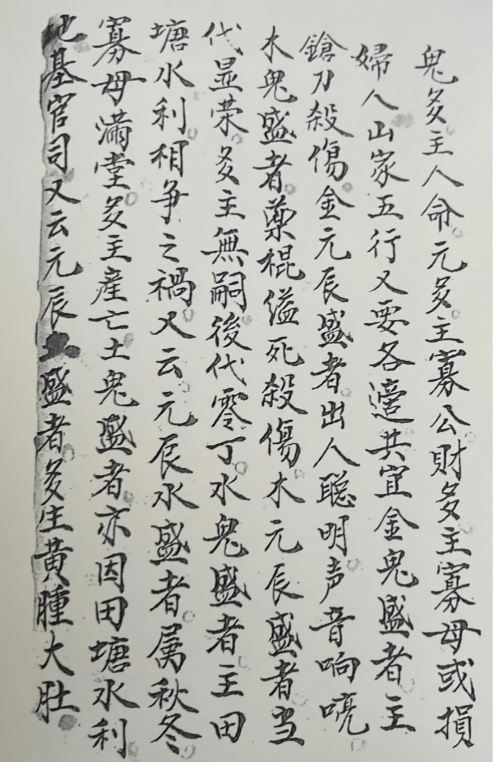 鬼多主人命元多主寡公財多主寡母或損
婦人山家五行又要各適其宜金鬼盛者主
鎗刀殺傷金元辰盛者出人聪明声音响喨
木鬼盛者藥棍縊死殺傷木元辰盛者当
代显荣多主無嗣後代零丁水鬼盛者主田
塘水利相争之禍又云元辰水盛者属秋冬
寡母滿堂多主産亡土鬼盛者亦因田塘水利
地基官司又云元辰土盛者多生黄腫大肚